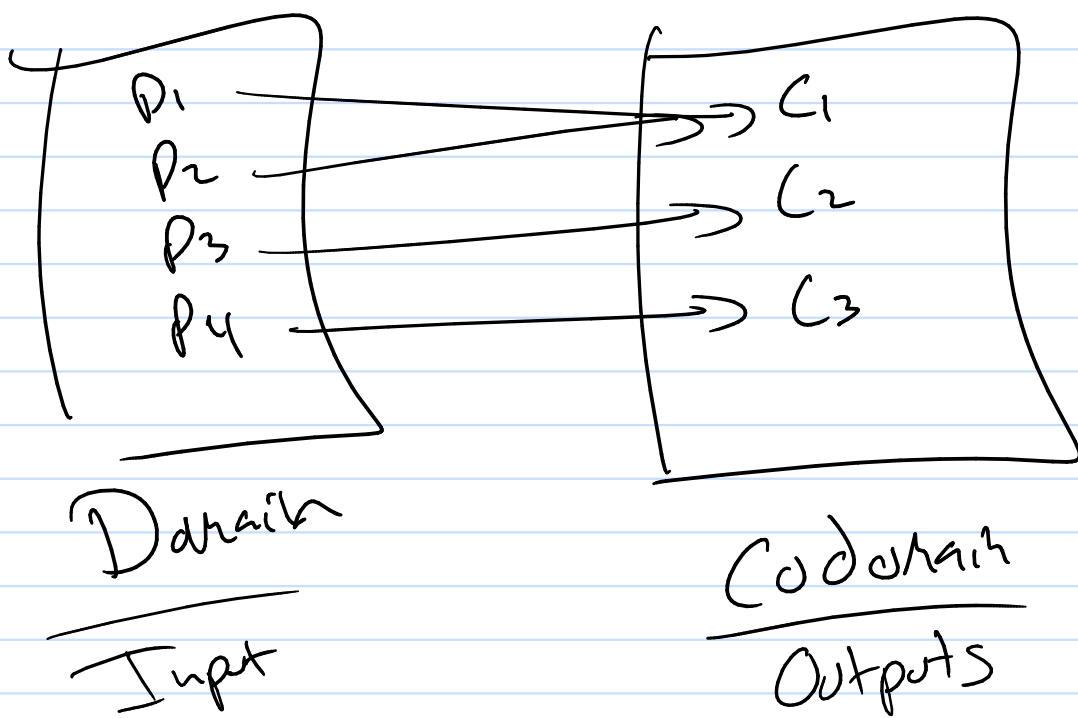 P1
P2
P3
P4
C1
C2
C3
Domain
Input
Codomain
Outputs